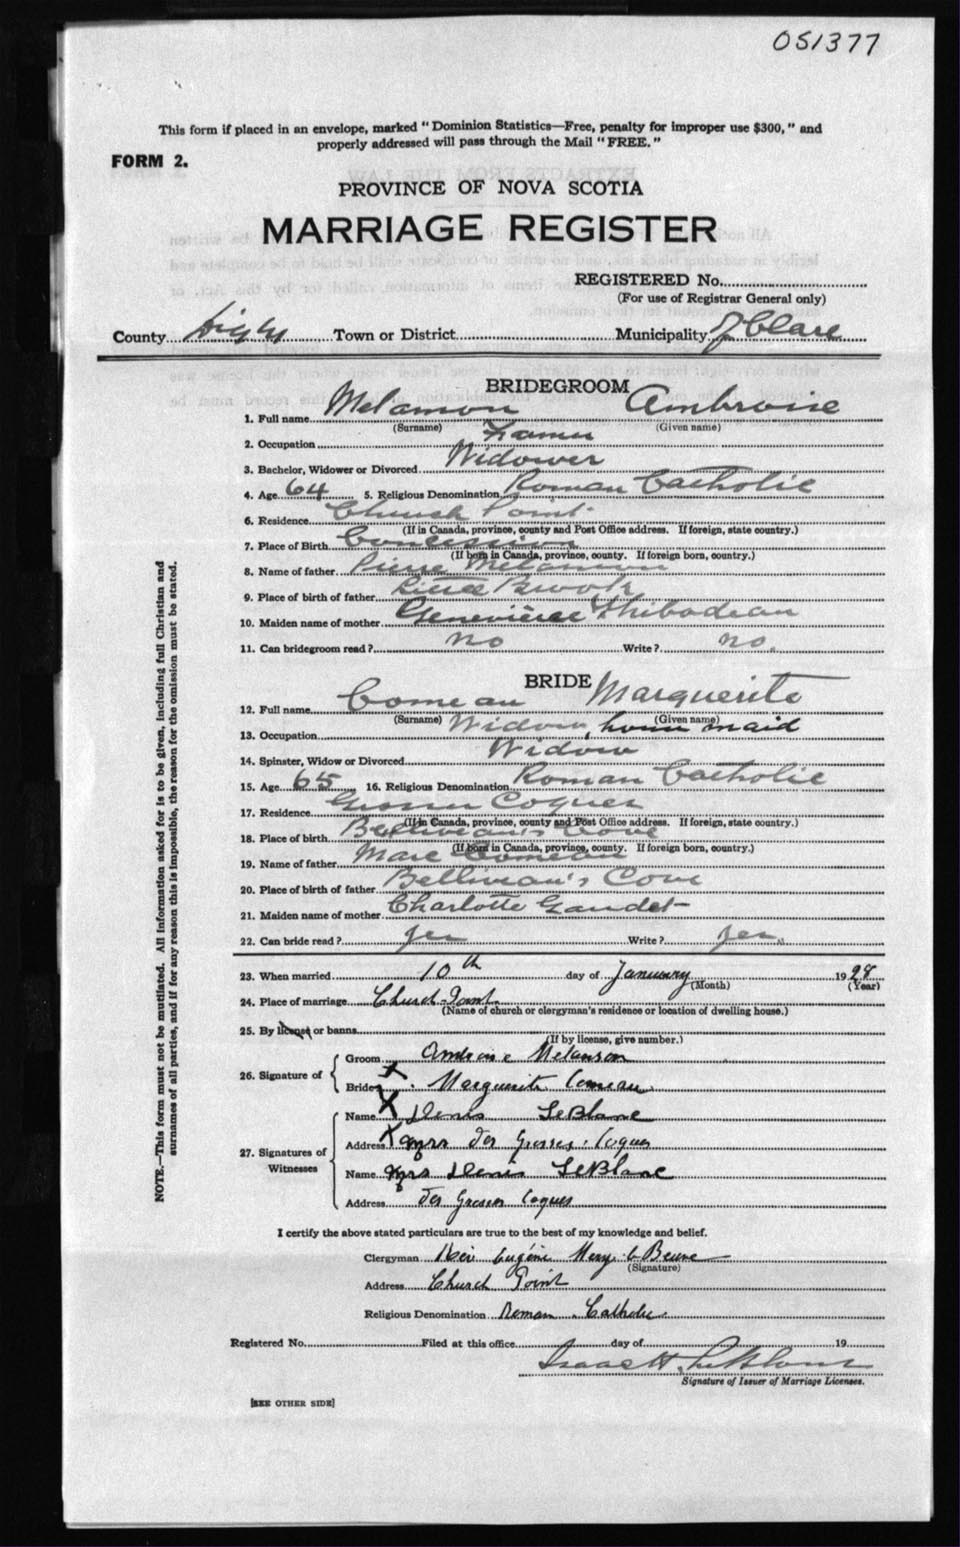 051377
This form if placed in an envelope, marked "Dominion Statistics—Free, penalty for improper use $300," and
properly addressed will pass through the Mail "FREE."
FORM 2.
PROVINCE OF NOVA SCOTIA
MARRIAGE REGISTER
REGISTERED No.
(For use of Registrar General only)
County Digby Town or District Municipality Clare
BRIDEGROOM
1. Full name Melanson Ambroise
(Surname) (Given name)
2. Occupation Farmer
3. Bachelor, Widower or Divorced Widower
4. Age 64 5. Religious Denomination Roman Catholic
6. Residence Church Point
(If in Canada, province, county and Post Office address. If foreign, state country.)
7. Place of Birth Concession
(If born in Canada, province, county. If foreign born, country.)
8. Name of father Pierre Melanson
9. Place of birth of father Little Brook
10. Maiden name of mother Geneviève Thibodeau
11. Can bridegroom read? no Write? no.
BRIDE
12. Full name Comeau Marguerite
(Surname) (Given name)
13. Occupation Widow, house maid
14. Spinster, Widow or Divorced Widow
15. Age 65 16. Religious Denomination Roman Catholic
17. Residence Grosses Coques
(If in Canada, province, county and Post Office address. If foreign, state country.)
18. Place of birth Belliveau's Cove
(If born in Canada, province, county. If foreign born, country.)
19. Name of father Marc Comeau
20. Place of birth of father Belliveau's Cove
21. Maiden name of mother Charlotte Gaudet
22. Can bride read? yes Write? yes.
23. When married 10th day of January 1928
(Month) (Year)
24. Place of marriage Church Point
(Name of church or clergyman's residence or location of dwelling house.)
25. By license or banns
(If by license, give number.)
26. Signature of
Groom Ambroise Melanson
Bride X Marguerite Comeau
27. Signatures of Witnesses
Name X Denis LeBlanc
Address X Grosses Coques
Name Mrs Denis LeBlanc
Address Grosses Coques
I certify the above stated particulars are true to the best of my knowledge and belief.
Clergyman Eugène
(Signature)
Address Church Point
Religious Denomination Roman Catholic
Registered No. Filed at this office day of 19
Isaac H. LeBlanc
Signature of Issuer of Marriage Licenses.
[SEE OTHER SIDE]
NOTE.—This form must not be mutilated. All information asked for is to be given, including full Christian and
surnames of all parties, and if for any reason this is impossible, the reason for the omission must be stated.